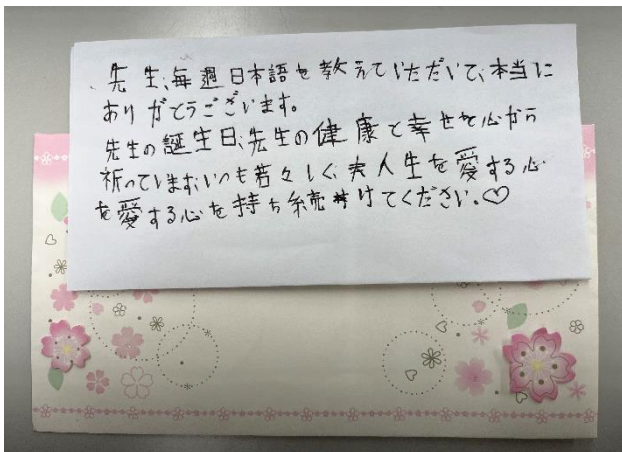 先生、毎週日本語を教えていただいて、本当に
ありがとうございます。
先生の誕生日、先生の健康と幸せを心から
祈っています。いつも若々しく、人生を愛する心
を愛する心を持ち続けてください。♡